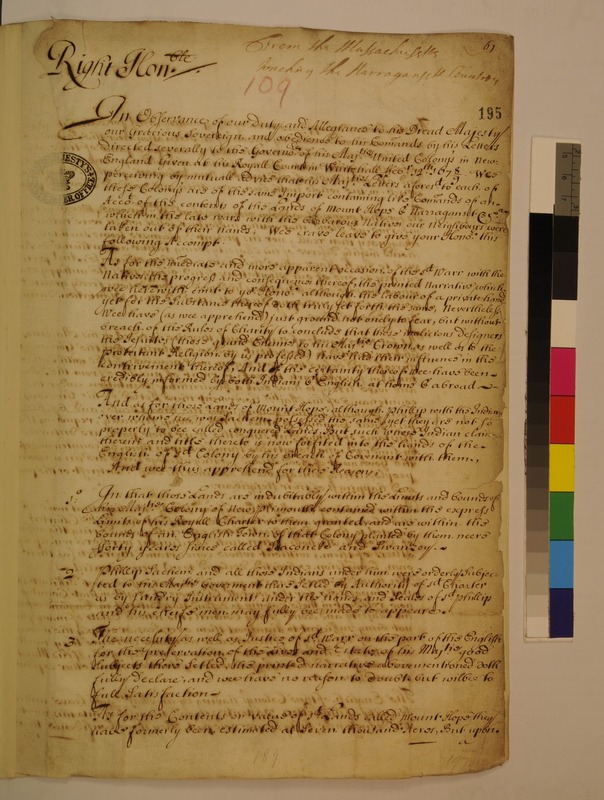 61
From the Massachusetts
touching the Narragansett Country
Right Hon.ble
109
195
In Observance of our duty and Allegiance to his Dread Majesty
our Gracious Soveraign, and obedience to his Comands by his Letters
directed severally to the Governo.rs of his Maj.ties United Colonys in New
England Given at his Royall Court at Whitehall feb.r 12.th 1678. Wee
perceiving by mutuall advise that his Maj.ties Letters aforesd to each of
these Colonys are of the same Import containing like Comands of an
Acco.t of the contents of the Lands of Mount Hope & Narraganset
which in the late warr with the barbarous Natives our Neighbours were
taken out of their hands. Wee crave leave to give your Hono.rs this
following Accompt.
As for the imediate and more apparent occasion of the s.d Warr with the
Natives, the progress and consequences thereof, the printed Narrative which
wee herewith emit to yo.r Hono.rs although the labour of a private hand
yet for the substance thereof doth truly set forth the same, Nevertheless
Wee have (as wee apprehend) just ground not onely to fear, but without
breach of the Rules of Charity to conclude that those malicious designers
the Jesuites (those grand Enimies to his Maj.ties Crown as well as to the
protestant Religion by us professed) have had their influence in the
contrivement thereof, And of the certainty thereof wee have been
credibly informed by both Indians & English at home & abroad.
And as for those Lands of Mount Hope although Phillip with the Indians
over whome he was Sachem possessed the same yet they are not so
properly to bee called conquered Lands. But such more Indian claime
therein and title thereto is now forfited into the hands of the
English of s.d Colony by his breach of Covenant with them,
And wee thus apprehend for these Reasons
1.o In that those Lands are indubitably within the limits and bounds of
his Maj.ties Colony of New Plimouth contained within the express
Limits of his Royall Charter to them granted, and are within the
bounds of an English Town of that Colony planted by them neere
forty yeares since called Saconett and Swanzey.
2. Phillip Sachem and all those Indians under him were orderly subjec-
ted to his Maj.ties Goverment there setled by Authority of s.d Charter
as by sundry Instruments under the hands and Seales of s.d Phillip
and his cheife men may fully bee made to appeare.
3. The necessity as well as Justice of s.d Warr on the part of the English
for the preservation of the lives and Estate of his Maj.ties good
Subjects there setled, the printed narrative above mentioned doth
fully declare, and wee have no reason to doubt but wilbee to
full Satisfaction
As for the Contents or value of s.d Lands called Mount Hope they
have formerly been estimated at seven thousand Acres, But upon
a
189